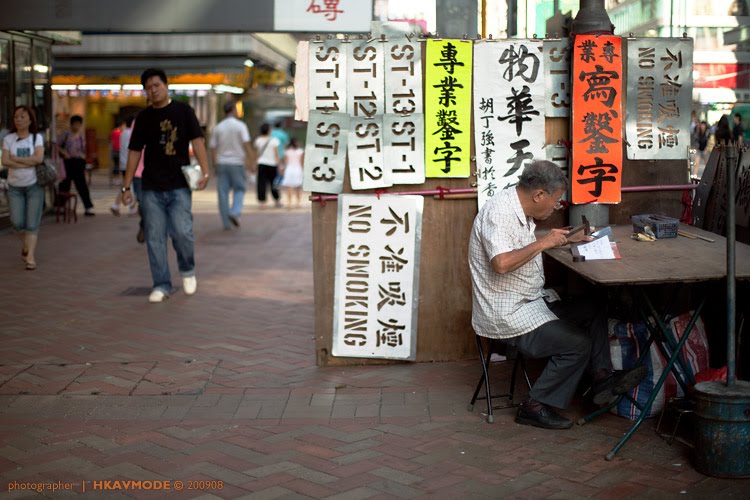 磚
ST-11
ST-3
ST-12
ST-2
ST-13
ST-1
專業鑿字
物華天
胡丁強書於香
ST-3
專業
寫鑿字
不准吸煙
NO SMOKING
不准吸煙
NO SMOKING
photographer | HKAVMODE © 200908